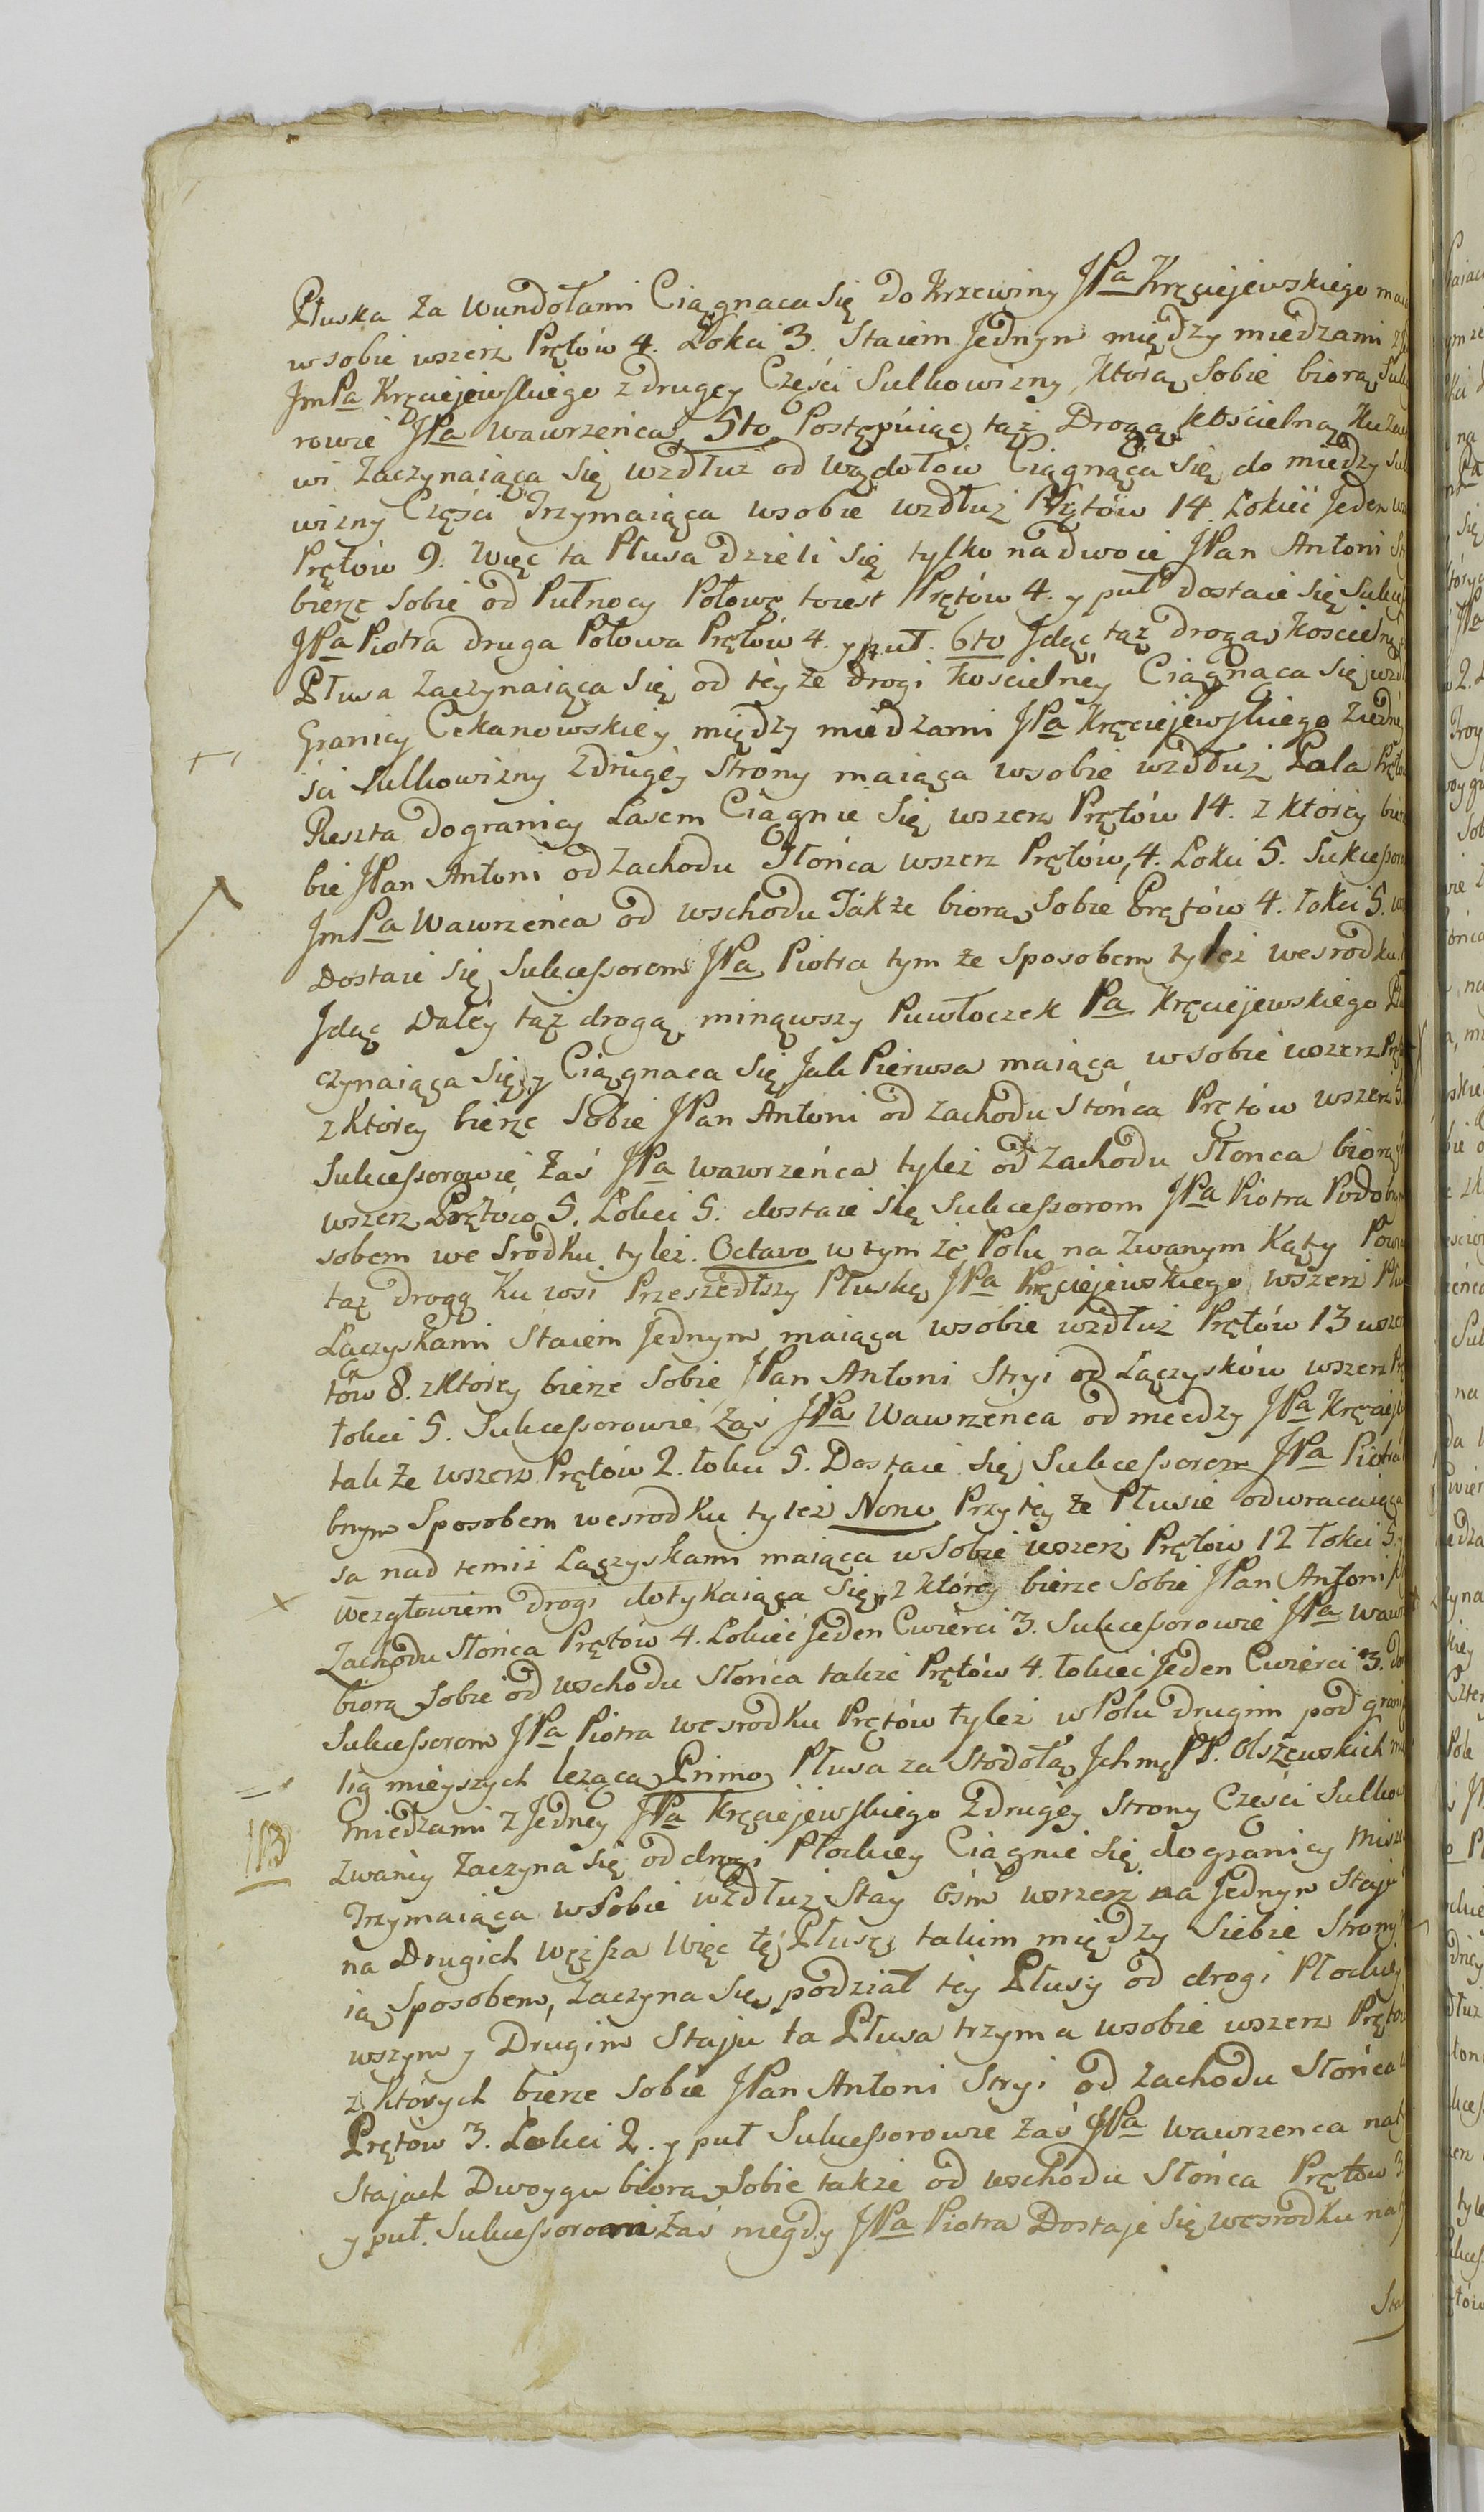 Płuska za Wundołami Ciągnaca Się do Krzewiny JPa Kręciejewskiego
w sobie wszerz Prętów 4. Łokci 3. Staiem Jednym między miedzami
JmPa Kręciejewskiego z drugey Części Sulkowizny, którą Sobie biorą
rowie JPa Wawrzeńca, 5to Postępuiąc taż Drogą kościelną Ku
wi Zaczynaiąca Się wzdłuż od Wądołów Ciągnąca Się do miedzy
wizny Części Trzymaiąca wsobie wzdłuż Prętów 14. Łokieć Jeden
Prętów 9. Więc ta Płusa dzieli Się tylko na dwoie JPan Antoni
bierze Sobie od Pułnocy Połowę toiest Prętów 4. y puł dostaie się
JPa Piotra druga Połowa Prętów 4. y puł. 6to Jdąc taż drogą Koscielną
Płusa zaczynaiąca Się od tey że drogi kościelnéy Ciągnaca Się
Granicy Cekanowskiey między miedzami JPa Kręciejewskiego
ści Sulkowizny zdrugéy Strony maiąca wsobie wzdłuż Pola
Reszta dogranicy Lasem Ciągnie Się wszerz Prętów 14. z którey
bie JPan Antoni od Zachodu Słońca wszerz Prętów, 4. Łokci 5.
JmPa Wawrzeńca od wschodu Także biorą Sobie Prętów 4. łokci 5.
Dostaie Się Sukcessorom JPa Piotra tym że Sposobem tyleż wesrodku
Jdąc Daléy taż drogą minąwszy Puwłoczek Pa Kręciejewskiego
czynaiąca Się y Ciągnaca Się Jak Pierwsa maiąca w sobie wszerz
z którey bierze Sobie JPan Antoni od zachodu Słońca Prętów wszerz 5
Sukcessorowie zaś JPa Wawrzeńca tyleż od Zachodu Słonca biorą
wszerz Prętów 5. Łokci 5. dostaie się Sukcessorom JPa Piotra
sobem we Srodku tyleż. Octavo w tym że Polu na zwanym Kąty
taż drogą Ku wsi Przeszedłszy Płuskę JPa Kręciejewskiego wszerz
Łączyskami Staiem Jednym maiąca wsobie wzdłuż Prętów 13
tów 8. z którey bierze Sobie JPan Antoni Stryi od Łączysków wszerz
łokci 5. Sukcessorowie Zaś JPa Wawrzenca od miedzy JPa
także wszerz Prętów 2. łokci 5. Dostaie Się Sukcessorom JPa Piotra
bnym Sposobem wesrodku tyleż Nono Przy tey że Płusie odwracaiąca
sa nad temiż Łączyskami maiąca w Sobie wszerz Prętów 12 łokci 5.
wezgłowiem drogi dotykaiąca Się, z którey bierze Sobie JPan Antoni
Zachodu Słońca Prętów 4. Łokieć Jeden Cwierci 3. Sukcessorowie JPa
biorą Sobie od wschodu Słońca także Prętów 4. łokieć Jeden Cwierci 3.
Sukcessorom JPa Piotra we srodku Prętów tyleż w Polu drugim pod
lig mieyszych leżąca Primo Płusa za Stodołą Jchmę PP. Olszewskich
miedzami z Jedney JPa Kręciejewskiego z drugéy Strony Cześci
zwaney zaczyna Się od drogi Płockiey Ciągnie Się do granicy
Trzymaiąca w Sobie wzdłuż Stay ośm wszerz na Jednym Staju
na Drugich węższa Więc tę Płusę takim między Siebie Strony
ią Sposobem, Zaczyna Się podział tey Płusy od drogi Płockiey
wszym y Drugim Staju ta Płusa trzyma wsobie wszerz
z których bierze Sobie JPan Antoni Stryi od zachodu Słońca
Prętów 3. Łokci 2. y puł Sukcessorowie zaś JPa Wawrzenca
Stajach Dwoygu biorą Sobie także od wschodu Słońca Prętów 3
y puł. Sukcessorom zaś niegdy JPa Piotra Dostaje Się wesrodku